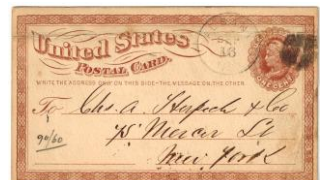 United States
Postal Card.
WRITE THE ADDRESS ONLY ON THIS SIDE - THE MESSAGE ON THE OTHER
18
To Chs. A & Co
75 Mercer St
90/60
New York